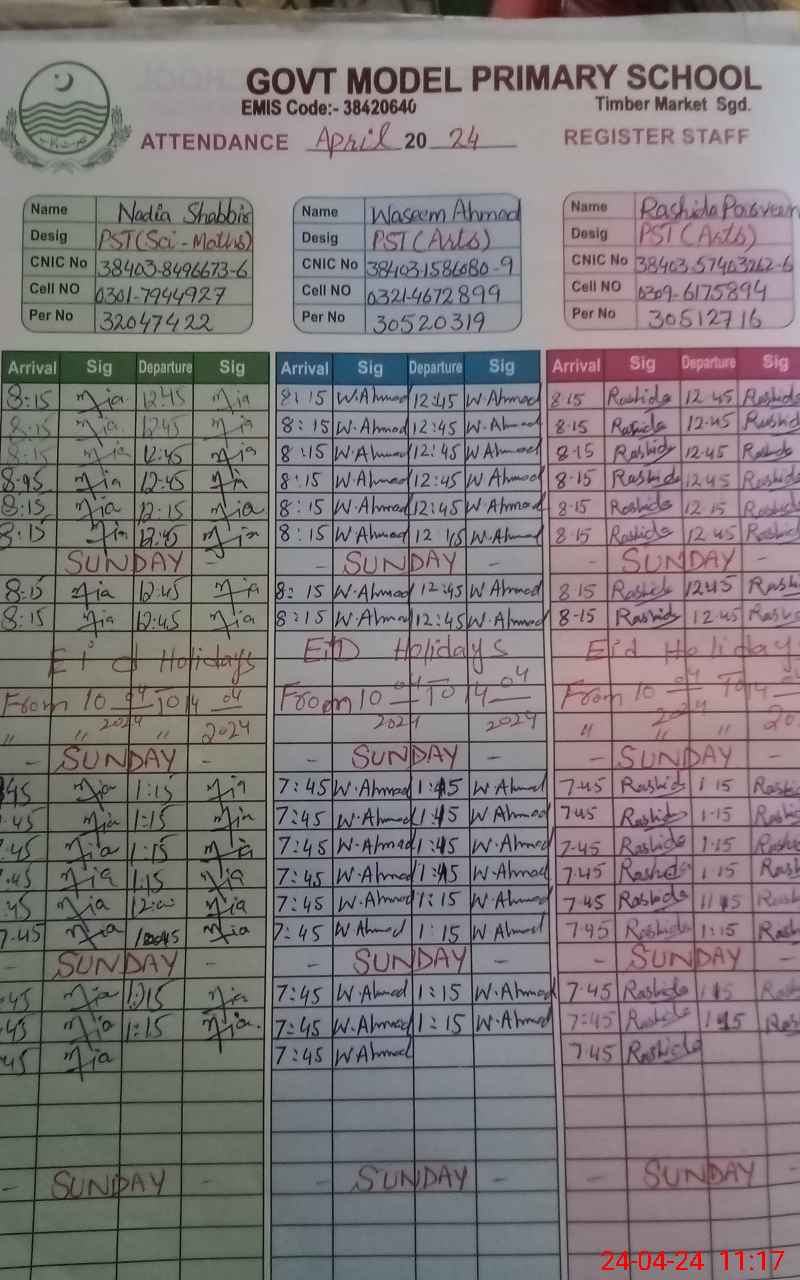 GOVT MODEL PRIMARY SCHOOL
EMIS Code:- 38420640 Timber Market Sgd.
ATTENDANCE April 20 24 REGISTER STAFF
Name Nadia Shabbir Name Waseem Ahmad Name Rashida Parveen
Desig PST(Sci-Maths) Desig PST(Arts) Desig PST(Arts)
CNIC No 38403-8496673-6 CNIC No 38403-1586080-9 CNIC No 38403-57403262-6
Cell NO 0301-7944927 Cell NO 0321-4672899 Cell NO 0309-6175894
Per No 32047422 Per No 30520319 Per No 30512716
Arrival Sig Departure Sig Arrival Sig Departure Sig Arrival Sig Departure Sig
8:15 12:45 8:15 W.Ahmad 12:45 W.Ahmad 8-15 Rashida 12-45 Rashida
8:15 12:45 8:15 W.Ahmad 12:45 W.Ahmad 8-15 Rashida 12-45 Rashida
8:15 12:45 8:15 W.Ahmad 12:45 W.Ahmad 8-15 Rashida 12-45 Rashida
8:45 12:45 8:15 W.Ahmad 12:45 W.Ahmad 8-15 Rashida 12-45 Rashida
8:15 12-15 8:15 W.Ahmad 12:45 W.Ahmad 8-15 Rashida 12-15 Rashida
8:15 12:45 8:15 W.Ahmad 12:45 W.Ahmad 8-15 Rashida 12-45 Rashida
SUNDAY - - SUNDAY - - SUNDAY -
8:15 12:45 8:15 W.Ahmad 12:45 W.Ahmad 8-15 Rashida 12:45 Rash
8:15 12:45 8:15 W.Ahmad 12:45 W.Ahmad 8-15 Rashida 12-45 Rash
Eid Holidays EID Holidays Eid Holiday
From 10 04 To 14 04 From 10 04 To 14 04 From 10 04 To 14 04
" " 2024 " 2024 2024 2024 " 2024 " 20
- SUNDAY - - SUNDAY - - SUNDAY -
45 1:15 7:45 W.Ahmad 1:45 W.Ahmad 7-45 Rashida 1-15 Rashid
.45 1:15 7:45 W.Ahmad 1:45 W.Ahmad 7-45 Rashida 1-15 Rashid
.45 1:15 7:45 W.Ahmad 1:45 W.Ahmad 7-45 Rashida 1-15 Rashid
.45 1:15 7:45 W.Ahmad 1:45 W.Ahmad 7-45 Rashida 1-15 Rash
.45 7:45 W.Ahmad 1:15 W.Ahmad 7-45 Rashida Rash
7.45 7:45 W Ahmad 1:15 W Ahmad 7-45 Rashida 1:15 Rash
- SUNDAY - - SUNDAY - - SUNDAY -
.45 1:15 7:45 W.Ahmad 1:15 W.Ahmad 7-45 Rashida 1:15 Rash
.45 1:15 7:45 W.Ahmad 1:15 W.Ahmad 7:45 Rashida Ras
.45 7:45 W Ahmad 7-45 Rashida
- SUNDAY - - SUNDAY - - SUNDAY -
24-04-24 11:17